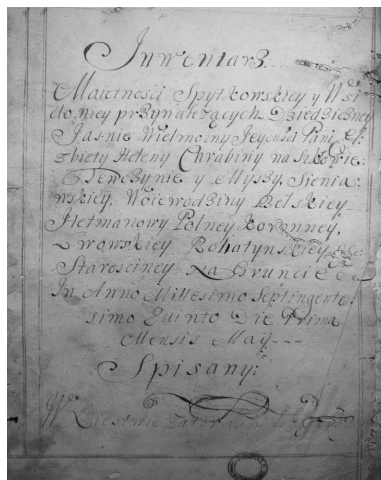 Inwentarz
Maiętnosci Spytkowskiey y Wsi
do niey przynależących Dziedziczney
Jasnie Wielmożny Jeymci Pani El
zbiety Heleny Chrabiny na Szkłowie
Tenczynie y Myszy, Sienia:
wskiey, Woiewodziny Bełskiey,
Hetmanowy Polney Koronney,
Lwowskiey Rohatynskiey etc:
Starosciney Na Gruncie
In Anno Millesimo Septingente
simo Quinto Die Prima
Mensis May ---
Spisany: